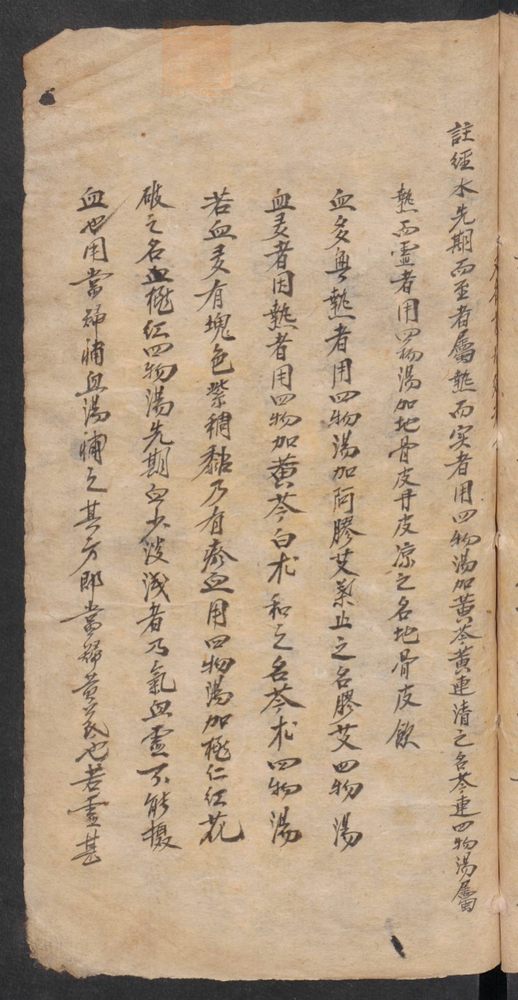 註經水先期而至者屬熱而实者用四物湯加黃芩黃連清之名芩連四物湯屬
熱而虛者用四物湯加地骨皮丹皮凉之名地骨皮飲
血多無熱者用四物湯加阿膠艾葉止之名膠艾四物湯
血多者因熱者用四物加黃芩白朮和之名芩朮四物湯
若血多有塊色紫稠黏乃有瘀血用四物湯加桃仁红花
破之名血桃红四物湯先期血少淡浅者乃氣血虛不能攝
血也用當歸補血湯補之其方即當歸黄芪也若虛甚